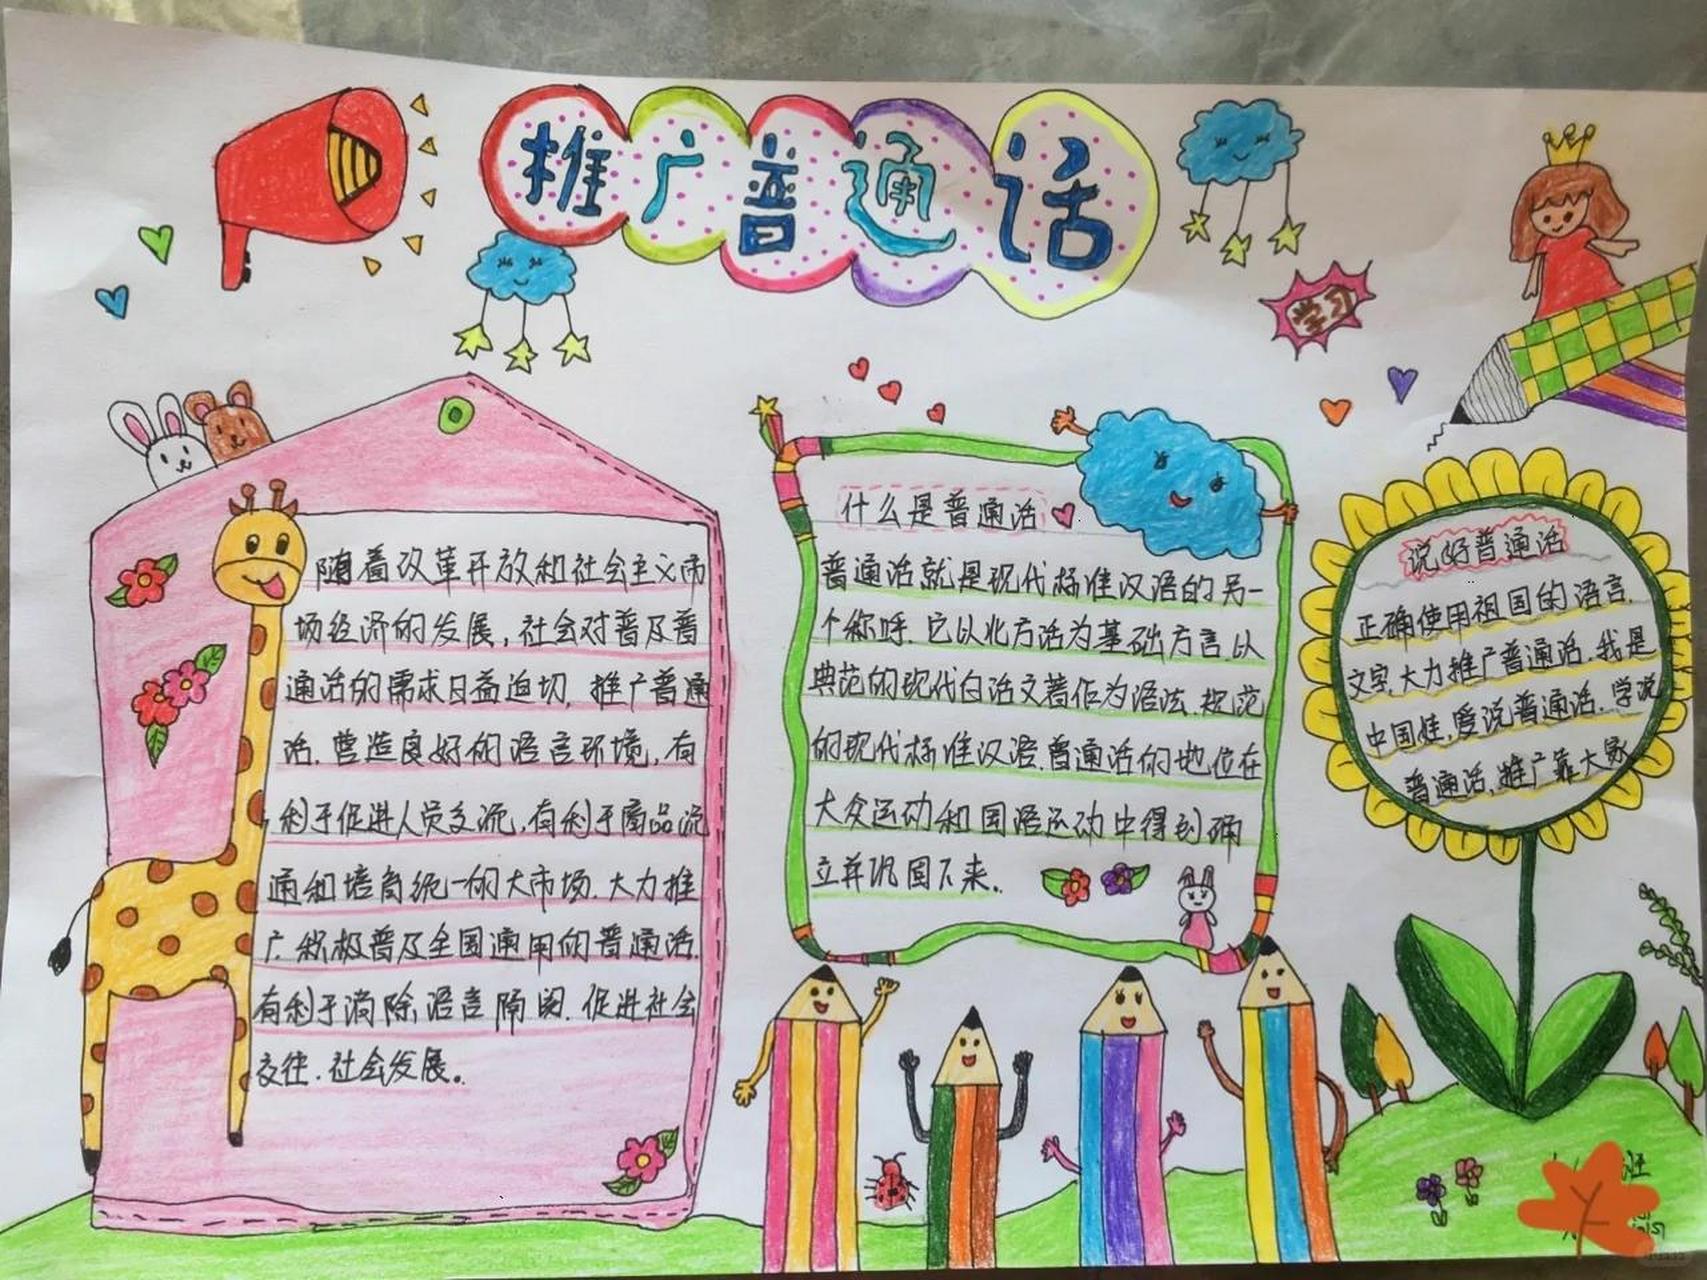 推广普通话
学习
随着改革开放和社会主义市
场经济的发展，社会对普及普
通话的需求日益迫切，推广普通
话，营造良好的语言环境，有
利于促进人员交流，有利于商品流
通和培育统一的大市场。大力推
广、积极普及全国通用的普通话，
有利于消除语言隔阂，促进社会
交往，社会发展。
什么是普通话
普通话就是现代标准汉语的另一
个称呼，它以北方话为基础方言，以
典范的现代白话文著作为语法规范
的现代标准汉语。普通话的地位在
大众运动和国语运动中得到确
立并巩固下来。
说好普通话
正确使用祖国的语言
文字，大力推广普通话。我是
中国娃，爱说普通话。学说
普通话，推广靠大家
班